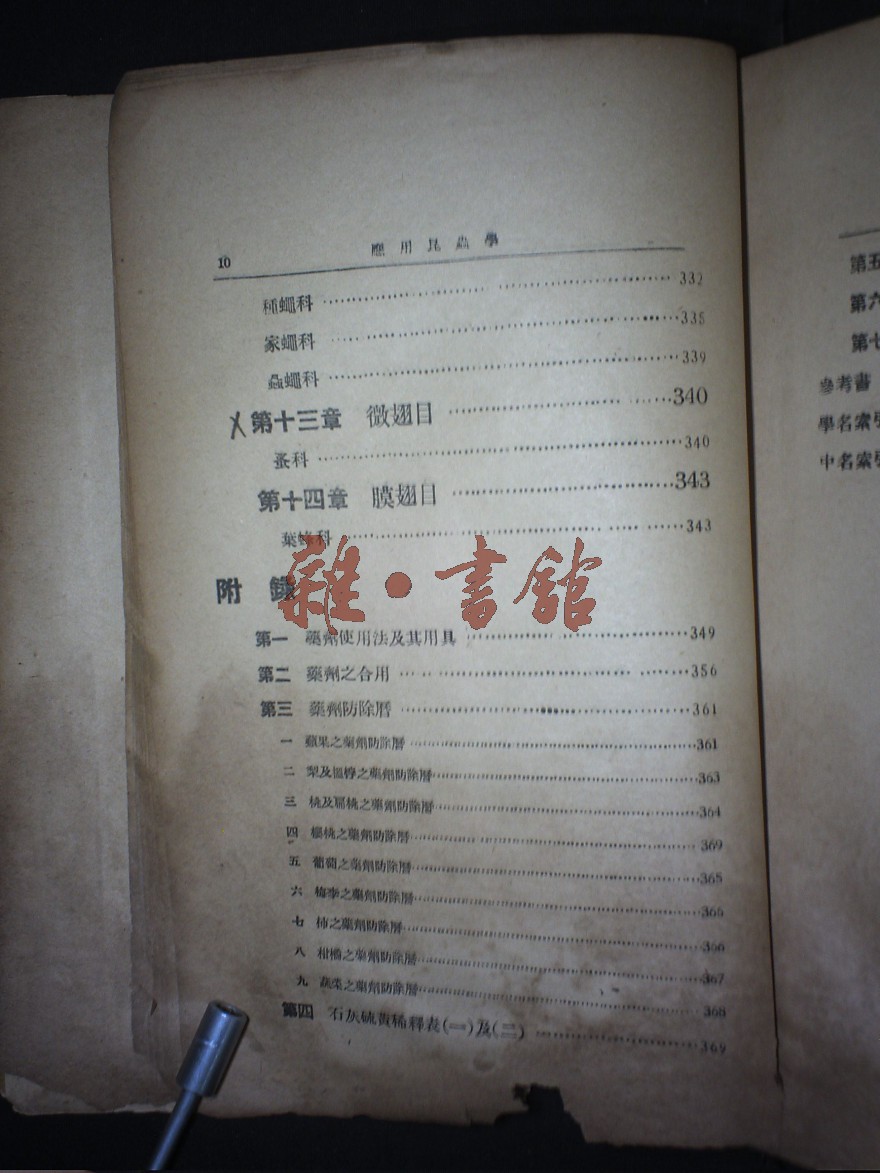 10 應用昆蟲學
種蠅科 332
家蠅科 335
蟲蠅科 339
X 第十三章 微翅目 340
蚤科 340
第十四章 膜翅目 343
葉蜂科 343
附錄
雜•書館
第一 藥劑使用法及其用具 349
第二 藥劑之合用 356
第三 藥劑防除曆 361
一 蘋果之藥劑防除曆 361
二 梨及榲桲之藥劑防除曆 363
三 桃及扁桃之藥劑防除曆 364
四 櫻桃之藥劑防除曆 369
五 葡萄之藥劑防除曆 365
六 梅李之藥劑防除曆 366
七 柿之藥劑防除曆 366
八 柑橘之藥劑防除曆 367
九 蔬菜之藥劑防除曆 368
第四 石灰硫黃稀釋表(一)及(二) 369
第五
第六
第七
參考書
學名索引
中名索引